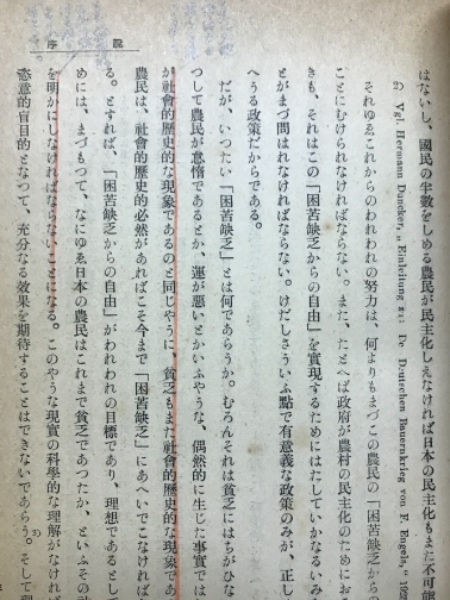 序説
はないし、國民の半數をしめる農民が民主化しえなければ日本の民主化もまた不可能
2) Vgl. Hermann Duncker, „Einleitung zu: De Deutschen Bauernkrieg von F. Engels,"
それゆゑこれからのわれわれの努力は、何よりもまづこの農民の「困苦缺乏からの
ことにむけられなければならない。また、たとへば政府が農村の民主化のためにお
きも、それはこの「困苦缺乏からの自由」を實現するためにはたしていかなるいみ
とがまづ問はれなければならない。けだしさういふ點で有意義な政策のみが、正し
へうる政策だからである。
だが、いつたい「困苦缺乏」とは何であらうか。むろんそれは貧乏にはちがひな
つして農民が怠惰であるとか、運が惡いとかいふやうな、偶然的に生じた事實では
が社會的歷史的な現象であるのと同じやうに、貧乏もまた社會的歷史的な現象であ
農民は、社會的歷史的必然があればこそ今まで「困苦缺乏」にあへいでこなければ
る。とすれば、「困苦缺乏からの自由」がわれわれの目標であり、理想であるとし
めには、まづもつて、なにゆゑ日本の農民はこれまで貧乏であつたか、といふその
を明かにしなければならないことになる。このやうな現實の科學的な理解がなけれ
恣意的盲目的となつて、充分なる效果を期待することはできないであらう。そして